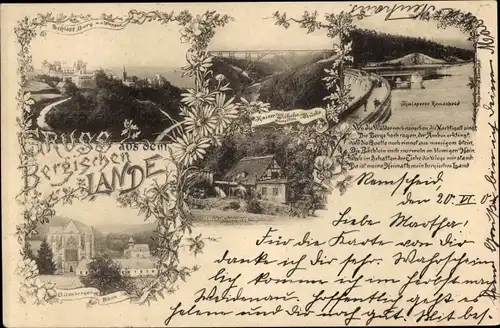 Schloss Burg
Kaiser Wilhelm Brücke
Thalsperre Remscheid
GRUSS aus dem
Bergischen
LANDE
Wo die Wälder noch rauschen, die Nachtigall singt,
Die Berge hoch ragen, der Amboss erklingt,
Wo die Quelle noch rinnet aus moosigem Stein,
Die Bächlein noch murmeln im blumigen Hain,
Wo im Schatten der Eiche die Wiege mir stand
Da ist meine Heimath, mein bergisches Land
Altenberger
Dom
Remscheid,
den 20. VI. 0
Liebe Martha!
Für die Karte von dir
danke ich dir sehr. Wahrschein
lich komme ich im herbst nach
Weidenau. Hoffentlich geht es
helene und dir noch gut. Mit bes